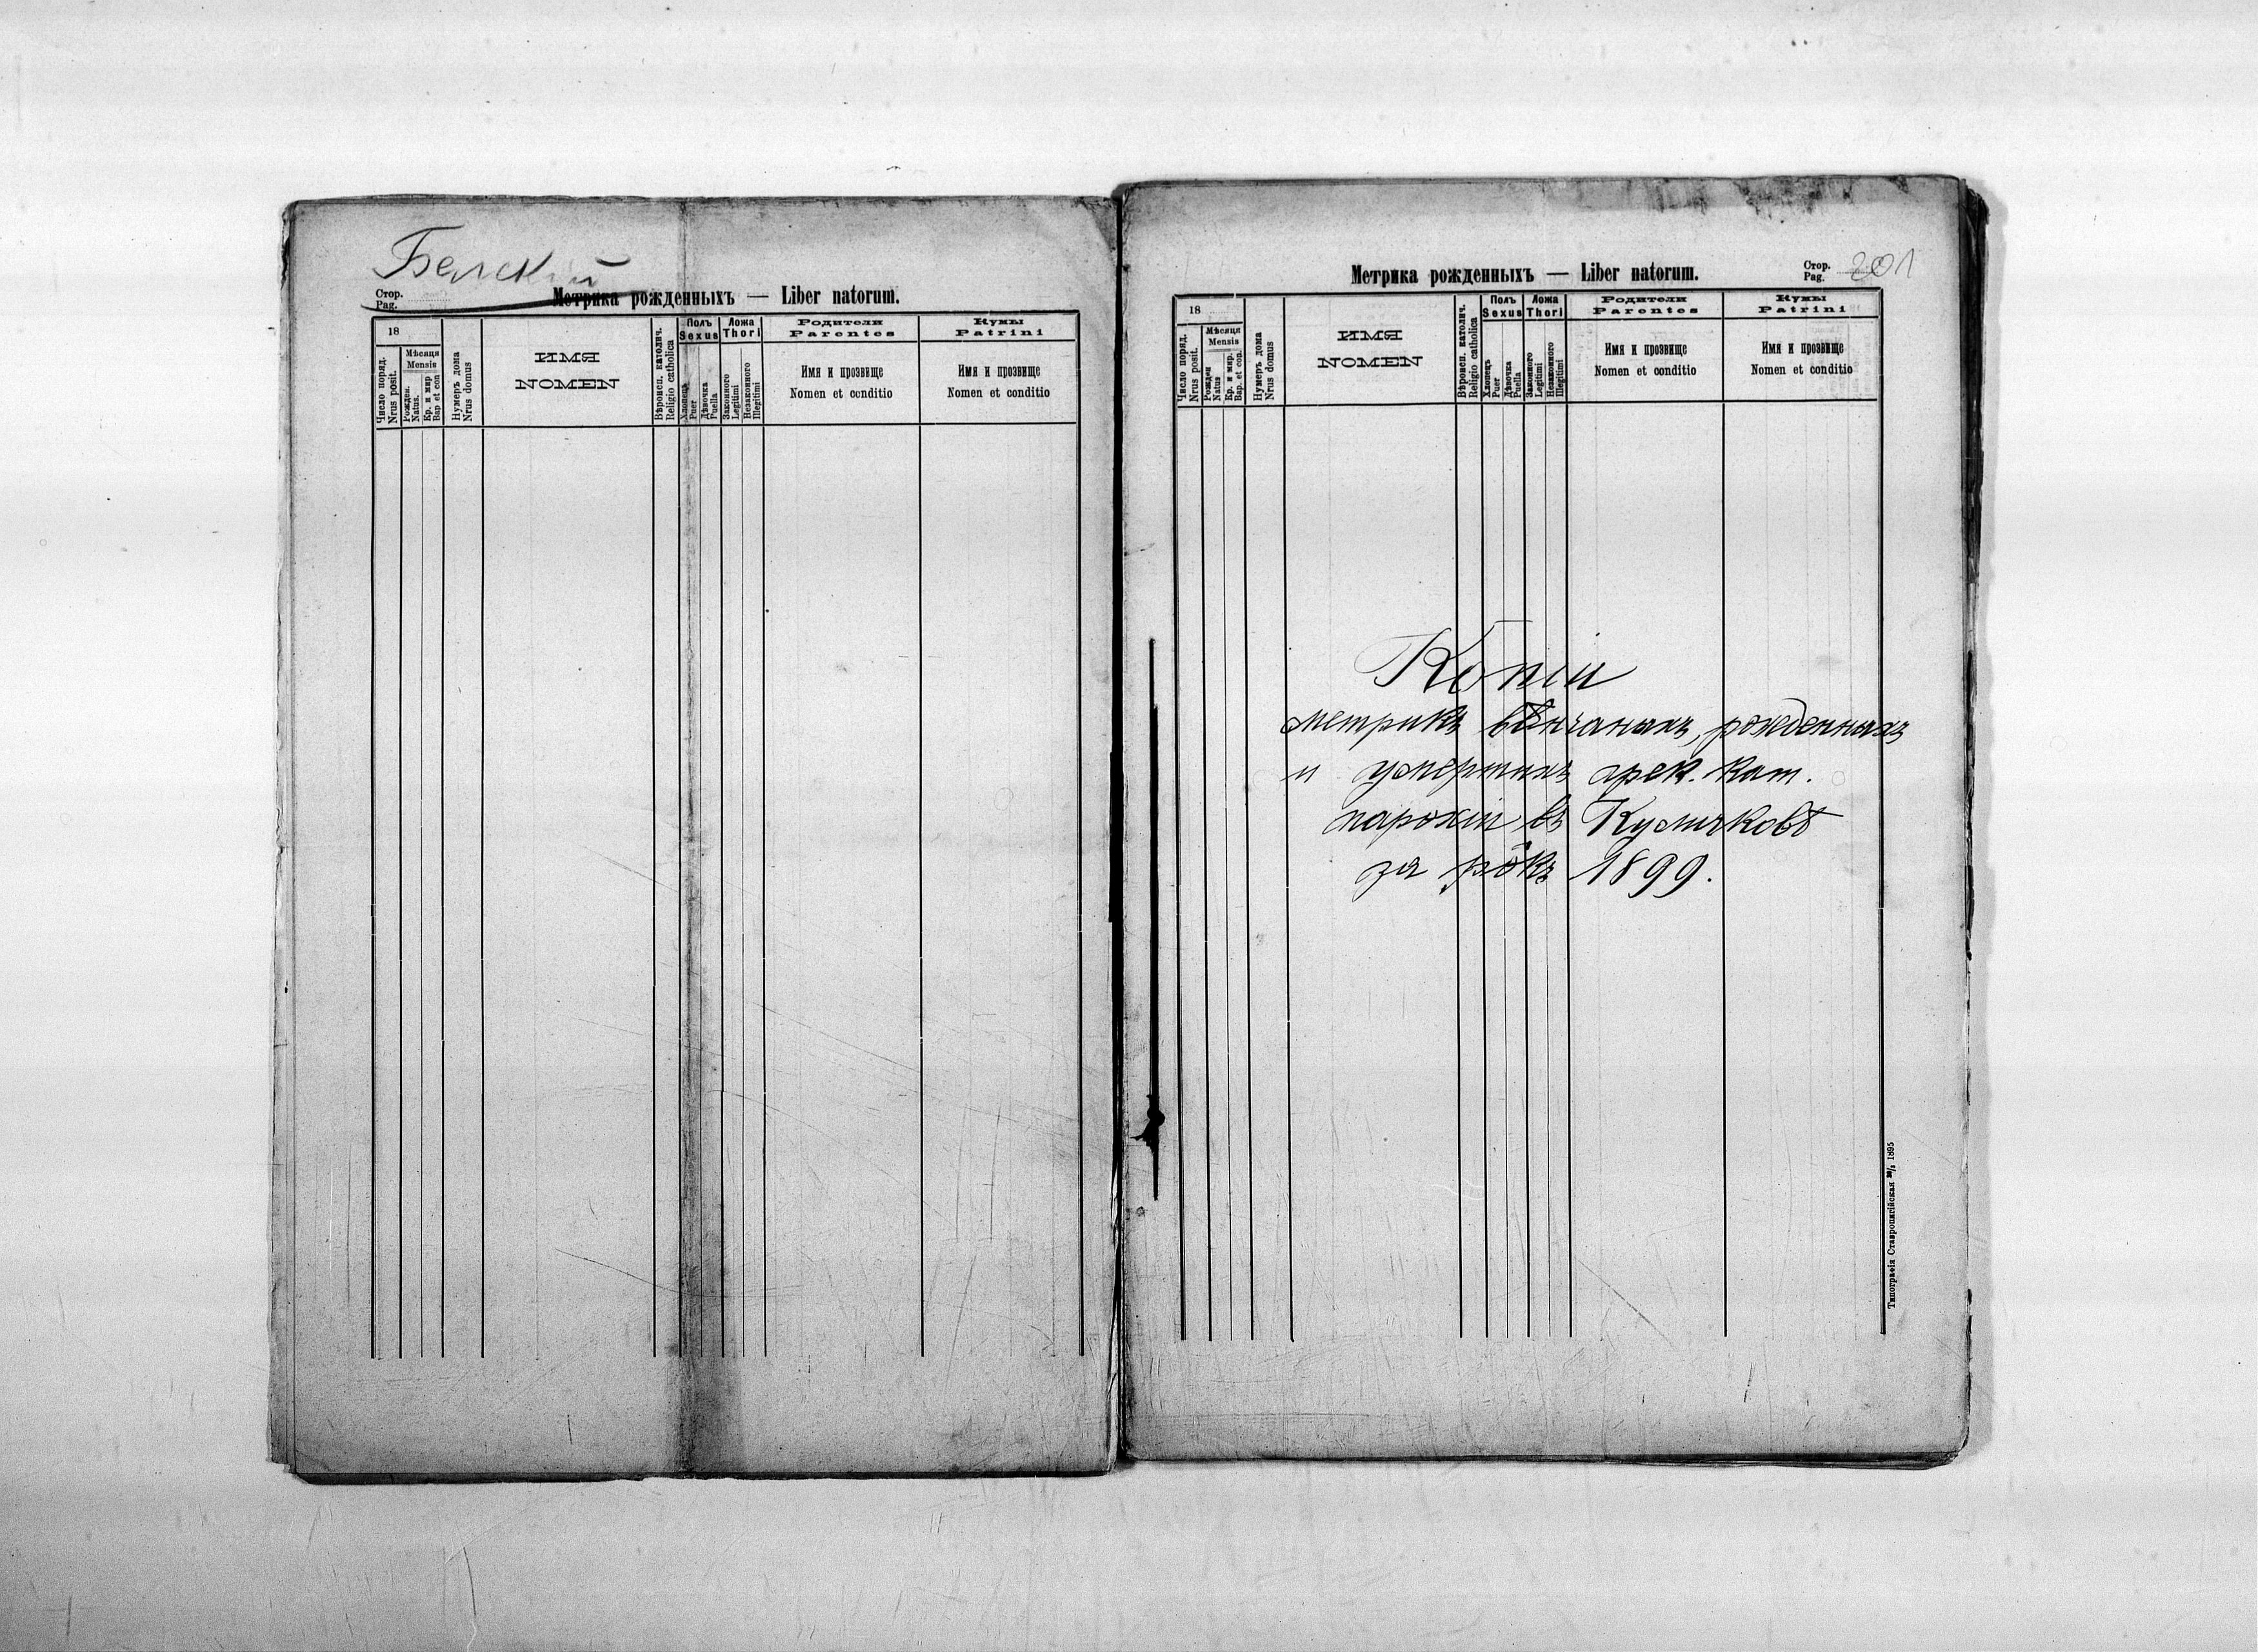 Белский
Стор.
Pag.
Метрика рожденныхъ — Liber natorum.
18
Число поряд.
Nrus posit.
Мѣсяця
Mensis
Рожден.
Natus.
Кр. и мир
Bap et con
Нумеръ дома
Nrus domus
ИМЯ
NOMEN
Вѣроисп. католич.
Religio catholica
Полъ
Sexus
Хлопець
Puer
Дѣвочка
Puella
Ложа
Thori
Законного
Legitimi
Незаконного
Illegitimi
Родители
Parentes
Имя и прозвище
Nomen et conditio
Кумы
Patrini
Имя и прозвище
Nomen et conditio
Метрика рожденныхъ — Liber natorum.
Стор.
Pag.
201
18
Число поряд.
Nrus posit.
Мѣсяця
Mensis
Рожден
Natus
Кр. и мир.
Bap. et con.
Нумеръ дома
Nrus domus
ИМЯ
NOMEN
Вѣроисп. католич.
Religio catholica
Полъ
Sexus
Хлопець
Puer
Дѣвочка
Puella
Ложа
Thori
Законного
Legitimi
Незаконного
Illegitimi
Родители
Parentes
Имя и прозвище
Nomen et conditio
Кумы
Patrini
Имя и прозвище
Nomen et conditio
Копіи
метрикъ вѣнчаныхъ, рожденныхъ
и умершихъ грек. кат.
парохіи въ Куличковѣ
за рôкъ 1899.
Типографія Ставропигійская 1895